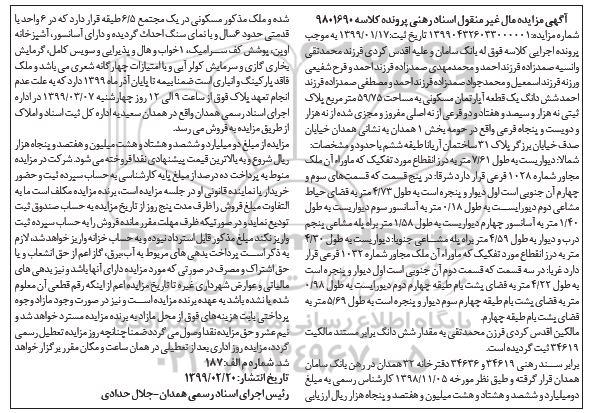 آگهی مزایده مال غیر منقول اسناد رهنی پرونده کلاسه ۹۸۰۱۶۹۰
شماره مزایده: ۱۳۹۹۰۴۳۲۶۰۳۳۰۰۰۰۰۱ تاریخ ثبت: ۱۳۹۹/۰۱/۱۷ به موجب
پرونده اجرایی کلاسه فوق له بانک سامان و علیه اقدس کردی فرزند محمدتقی
وانسیه صمدزاده فرزند احمد و محمدمهدی صمدزاده فرزند احمد و فرح شفیعی
ورزنه فرزند اسمعیل و محمدجواد صمدزاده فرزند احمد و مصطفی صمدزاده فرزند
احمد شش دانگ یک قطعه آپارتمان مسکونی به مساحت ۵۹/۷۵ متر مربع پلاک
ثبتی نه هزار و سیصد و هفتاد و دو فرعی از نه اصلی مفروز و مجزی شده از نه هزار
و دویست و پنجاه فرعی واقع در حومه بخش ۱ همدان به نشانی همدان خیابان
صدف خیابان برزگر پلاک ۳۱ ساختمان آریانا طبقه ششم با حدود و مشخصات:
شمالا: دیواریست به طول ۷/۶۱ متر به درز انقطاع مورد تفکیک که ماورا آن ملک
مجاور شماره ۱۰۲۸ فرعی قرار دارد شرقا: در پنج قسمت که قسمت‌های سوم و
چهارم آن جنوبی است اول دیوار و پنجره است به طول ۴/۷۳ متر به فضای حیاط
مشاعی دوم دیواریست به طول ۰/۱۸ متر به آسانسور سوم دیواریست به طول
۱/۴۰ متر به آسانسور چهارم دیواریست به طول ۱/۵۸ متر براه پله مشاعی پنجم
درب و دیوار به طول ۴/۵۹ متر براه پله مشاعی جنوبا: دیواریست به طول ۴/۳۰
متر به درز انقطاع مورد تفکیک که ماوراء آن ملک مجاور شماره ۱۰۳۲ فرعی قرار
دارد غربا: در سه قسمت که قسمت دوم آن جنوبی است اول دیوار و پنجره است
به طول ۴/۲۲ متر به فضای پشت بام طبقه چهارم دوم دیواریست به طول ۰/۹۸
متر به فضای پشت بام طبقه چهارم سوم دیوار و پنجره است به طول ۵/۶۹ متر به
فضای پشت بام طبقه چهارم.
مالکین اقدس کردی فرزند محمدتقی به مقدار شش دانگ برابر مستند مالکیت
۳۴۶۱۹ ثبت گردیده است.
برابر سند رهنی ۳۴۶۱۹ و ۳۴۶۳۶ دفترخانه ۳۲ همدان در رهن بانک سامان
همدان قرار گرفته و طبق نظر مورخه ۱۳۹۸/۱۱/۰۵ کارشناس رسمی به مبلغ
دو میلیارد و ششصد و هشتاد و هشت میلیون و هفتصد و پنجاه هزار ریال ارزیابی
شده و ملک مذکور مسکونی در یک مجتمع ۶/۵ طبقه قرار دارد که در ۶ واحد یا
قدمتی حدود ۶ سال و با نمای سنگ احداث گردیده و دارای آسانسور، آشپزخانه
اوپن، پوشش کف سرامیک، ۱ خواب و هال و پذیرایی و سویس کامل، گرمایش
بخاری گازی و سرمایش کولر آبی و با امتیازات چهارگانه شعری می باشد و ملک
فاقد پارکینگ و انباری است ضمنا بیمه تا پایان آذر ماه ۱۳۹۹ دارد که به علت عدم
انجام تعهد پلاک فوق از ساعت ۹ الی ۱۲ روز چهارشنبه ۱۳۹۹/۰۳/۰۷ در اداره
اجرای اسناد رسمی همدان واقع در همدان سعیدیه اداره کل ثبت اسناد و املاک
از طریق مزایده به فروش می رسد.
مزایده از مبلغ دو میلیارد و ششصد و هشتاد و هشت میلیون و هفتصد و پنجاه هزار
ریال شروع و به بالاترین قیمت پیشنهادی نقدا فروخته می شود. شرکت در مزایده
منوط به پرداخت ده درصد از مبلغ پایه کارشناسی به حساب سپرده ثبت و حضور
خریدار یا نماینده قانونی او در جلسه مزایده است، برنده مزایده مکلف است ما به
التفاوت مبلغ فروش را ظرف مدت پنج روز از تاریخ مزایده به حساب صندوق ثبت
تودیع نماید و در صورتیکه ظرف مهلت مقرر مانده فروش را به حساب سپرده ثبت
واریز نکند مبلغ مذکور قابل استرداد نبوده و به حساب خزانه واریز خواهد شد، لازم
به ذکر است پرداخت بدهی های مربوط به آب، برق، گاز اعم از حق انشعاب و یا
حق اشتراک و مصرف در صورتی که مورد مزایده دارای آنها باشد و نیز بدهی های
مالیاتی و عوارض شهرداری غیره تا تاریخ مزایده اعم از اینکه رقم قطعی آن معلوم
شده یا نشده باشد به عهده برنده مزایده است و نیز در صورت وجود مازاد وجوه
پرداختی بابت هزینه های فوق از محل مازاد به برنده مزایده مسترد خواهد شد و
نیم عشر و حق مزایده نقدا وصول می گردد ضمنا چنانچه روز مزایده تعطیل رسمی
گردد، مزایده روز اداری بعد از تعطیلی در همان ساعت و مکان مقرر برگزار خواهد
شد. شماره م الف: ۱۸۷
تاریخ انتشار: ۱۳۹۹/۰۲/۲۰
رئیس اجرای اسناد رسمی همدان - جلال حدادی